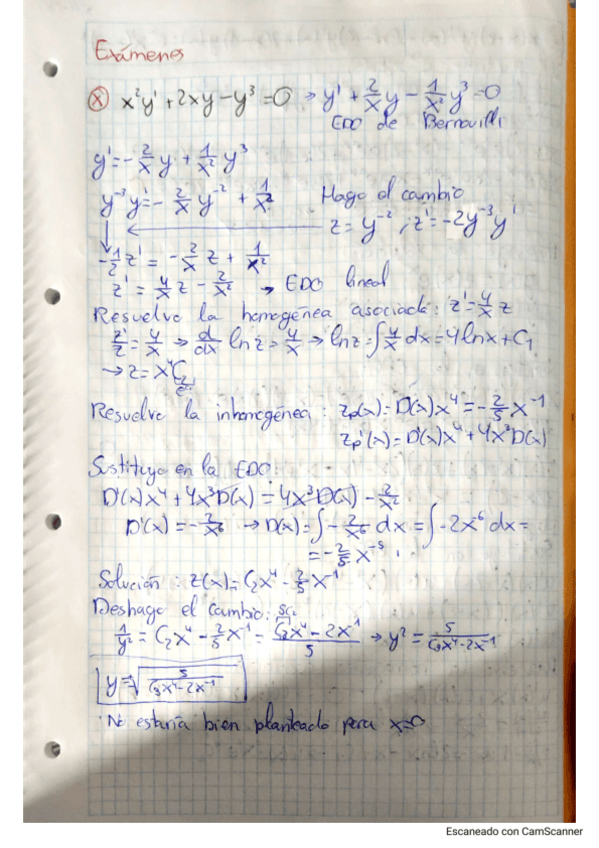 Exámenes
x²y' + 2xy - y³ = 0 → y' + 2/x y - 1/x² y³ = 0
EDO de Bernouilli
y' = -2/x y + 1/x² y³
y⁻³y' = -2/x y⁻² + 1/x² Hago el cambio
z = y⁻² ; z' = -2y⁻³y'
-1/2 z' = -2/x z + 1/x²
z' = 4/x z - 2/x² → EDO lineal
Resuelvo la homogénea asociada: z' = 4/x z
z'/z = 4/x → d/dx ln z = 4/x → ln z = ∫ 4/x dx = 4 ln x + C₁
→ z = x⁴C₂
Resuelvo la inhomogénea : zp(x) = D(x)x⁴ = -2/5 x⁻¹
zp'(x) = D'(x)x⁴ + 4x³D(x)
Sustituyo en la EDO:
D'(x)x⁴ + 4x³D(x) = 4x³D(x) - 2/x²
D'(x) = -2/x⁶ → D(x) = ∫ -2/x⁶ dx = ∫ -2x⁻⁶ dx =
= -2/5 x⁻⁵
Solución : z(x) = C₂x⁴ - 2/5 x⁻¹
Deshago el cambio:
1/y² = C₂x⁴ - 2/5 x⁻¹ = (C₃x⁴ - 2x⁻¹)/5 → y² = 5/(C₃x⁴ - 2x⁻¹)
y = √(5/(C₃x⁴ - 2x⁻¹))
No estaría bien planteado para x=0
Escaneado con CamScanner